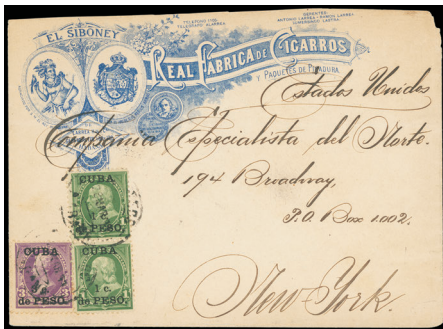 EL SIBONEY
REAL FÁBRICA DE CIGARROS
Y PAQUETES DE PICADURA.
Estados Unidos
Compania Especialista del Norte.
194 Broadway,
P.O. Box 1.002.
New-York.
CUBA
1 c.
de PESO.
CUBA
3 c.
de PESO.
CUBA
1 c.
de PESO.